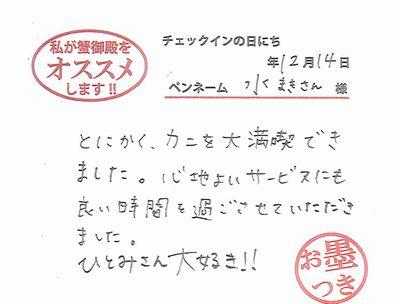 私が蟹御殿を
オススメ
します!!
チェックインの日にち
年12月14日
ペンネーム 水まきさん 様
とにかく、カニを大満喫でき
ました。心地よいサービスにも
良い時間を過ごさせていただき
ました。
ひとみさん大好き!!
お墨つき